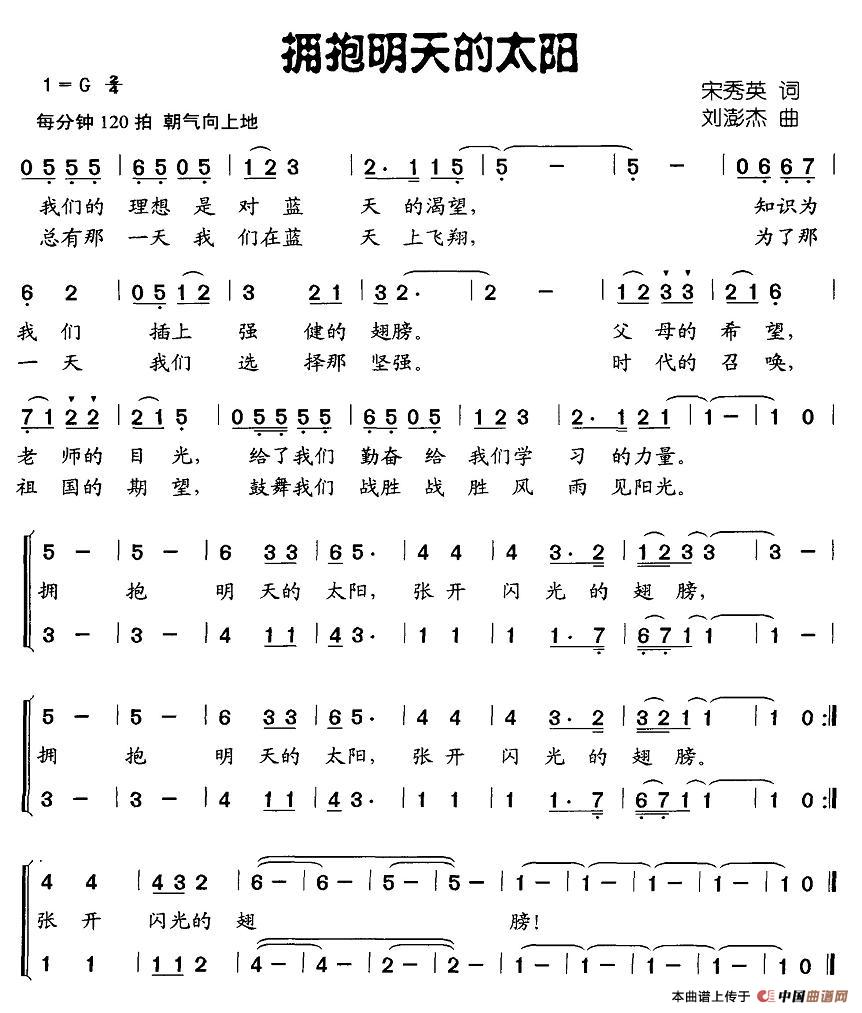 拥抱明天的太阳
1=G 2/4
宋秀英 词
每分钟120拍 朝气向上地
刘澎杰 曲
0 5 5 5 | 6 5 0 5 | 1 2 3 | 2· 1 1 5 | 5 - | 5 - | 0 6 6 7 |
我们的 理想 是 对 蓝 天 的渴望, 知识为
总有那 一天 我 们在蓝 天 上飞翔, 为了那
6 2 | 0 5 1 2 | 3 2 1 | 3 2· | 2 - | 1 2 3 3 | 2 1 6 |
我 们 插上 强 健的 翅膀。 父 母的 希 望,
一 天 我们 选 择那 坚强。 时 代的 召 唤,
7 1 2 2 | 2 1 5 | 0 5 5 5 5 | 6 5 0 5 | 1 2 3 | 2· 1 2 1 | 1 - | 1 0 |
老 师的 目 光, 给了我们 勤奋 给 我们学 习 的力量。
祖 国的 期 望, 鼓舞我们 战胜 战 胜 风 雨 见阳光。
5 - | 5 - | 6 3 3 | 6 5· | 4 4 | 4 3· 2 | 1 2 3 3 | 3 - |
拥 抱 明 天的 太阳, 张 开 闪 光 的 翅 膀,
3 - | 3 - | 4 1 1 | 4 3· | 1 1 | 1 1· 7 | 6 7 1 1 | 1 - |
5 - | 5 - | 6 3 3 | 6 5· | 4 4 | 4 3· 2 | 3 2 1 1 | 1 0 :||
拥 抱 明 天的 太阳, 张 开 闪 光 的 翅 膀。
3 - | 3 - | 4 1 1 | 4 3· | 1 1 | 1 1· 7 | 6 7 1 1 | 1 0 :||
4 4 | 4 3 2 | 6 - | 6 - | 5 - | 5 - | 1 - | 1 - | 1 - | 1 - | 1 0 ||
张 开 闪光的 翅 膀!
1 1 | 1 1 2 | 4 - | 4 - | 2 - | 2 - | 1 - | 1 - | 1 - | 1 - | 1 0 ||
本曲谱上传于 中国曲谱网